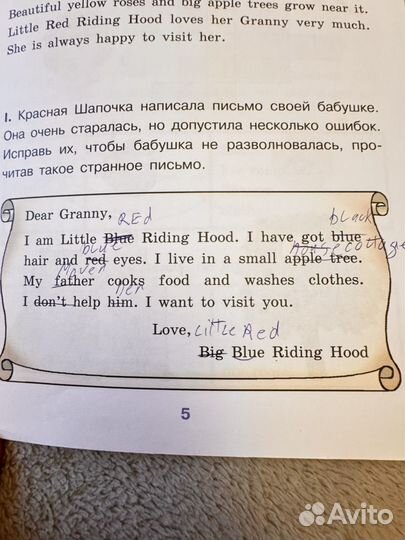 Beautiful yellow roses and big apple trees grow near it.
Little Red Riding Hood loves her Granny very much.
She is always happy to visit her.
I. Красная Шапочка написала письмо своей бабушке.
Она очень старалась, но допустила несколько ошибок.
Исправь их, чтобы бабушка не разволновалась, про-
читав такое странное письмо.
Dear Granny,
REd
black
I am Little Blue Riding Hood. I have got blue
blue
cottage
hair and red eyes. I live in a small apple tree.
My father cooks food and washes clothes.
her
I don't help him. I want to visit you.
Love, Little Red
Big Blue Riding Hood
5
Avito